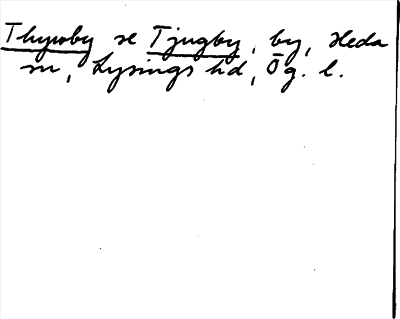 Thyuby se Tjugby, by, Heda
sn, Lysings hd, Ög. l.